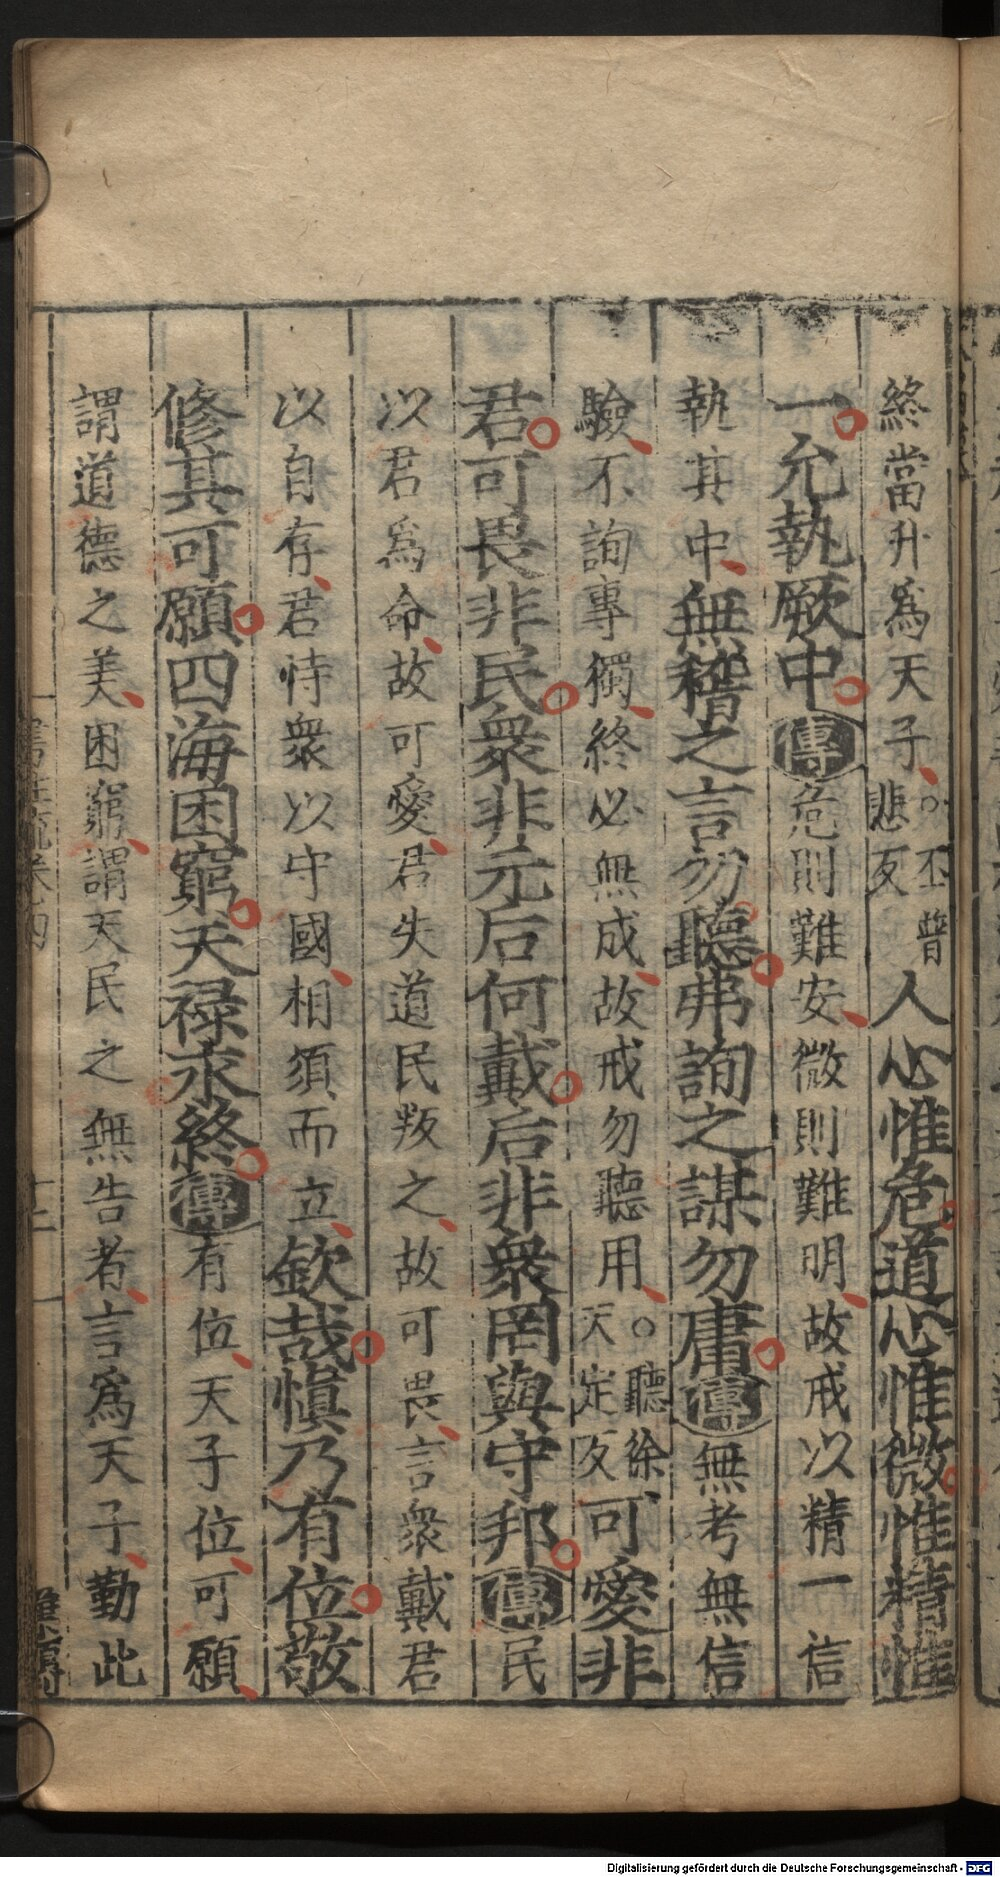 終當升爲天子○丕普悲反人心惟危道心惟微惟精惟
一允執厥中傳危則難安微則難明故戒以精一信
執其中無稽之言勿聽弗詢之謀勿庸傳無考無信
驗不詢專獨終必無成故戒勿聽用○聽徐天定反可愛非
君可畏非民衆非元后何戴后非衆罔與守邦傳民
以君爲命故可愛君失道民叛之故可畏言衆戴君
以自存君恃衆以守國相須而立欽哉愼乃有位敬
修其可願四海困窮天祿永終傳有位天子位可願
謂道德之美困窮謂天民之無告者言爲天子勤此
Digitalisierung gefördert durch die Deutsche Forschungsgemeinschaft - DFG